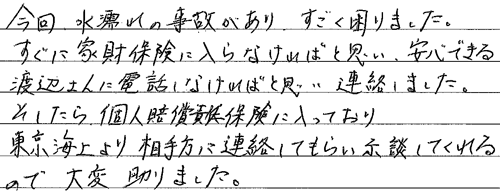 今回、水濡れの事故があり、すごく困りました。
すぐに家財保険に入らなければと思い、安心できる
渡辺さんに電話しなければと思い 連絡しました。
そしたら、個人賠償責任保険に入っており
東京海上より 相手方に連絡してもらい示談してくれる
ので 大変 助りました。